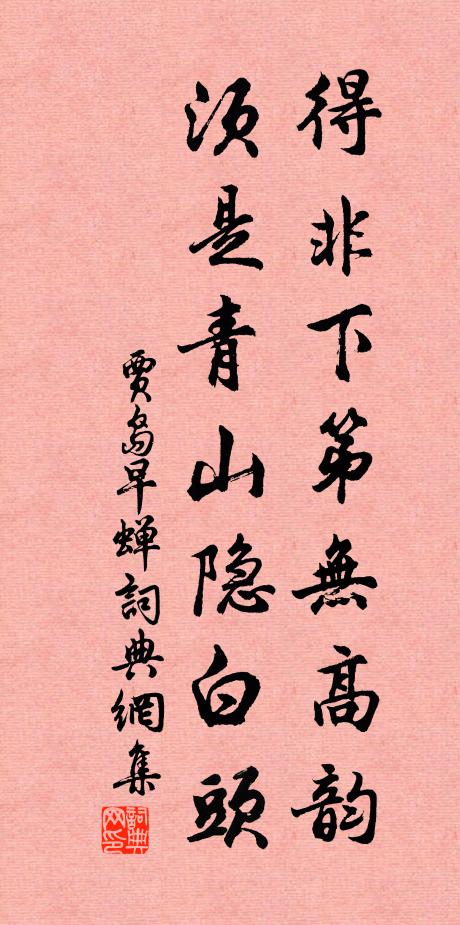 得非下第無高韻
须是青山隐白頭
賈島早蝉詞典網集
詞典网印